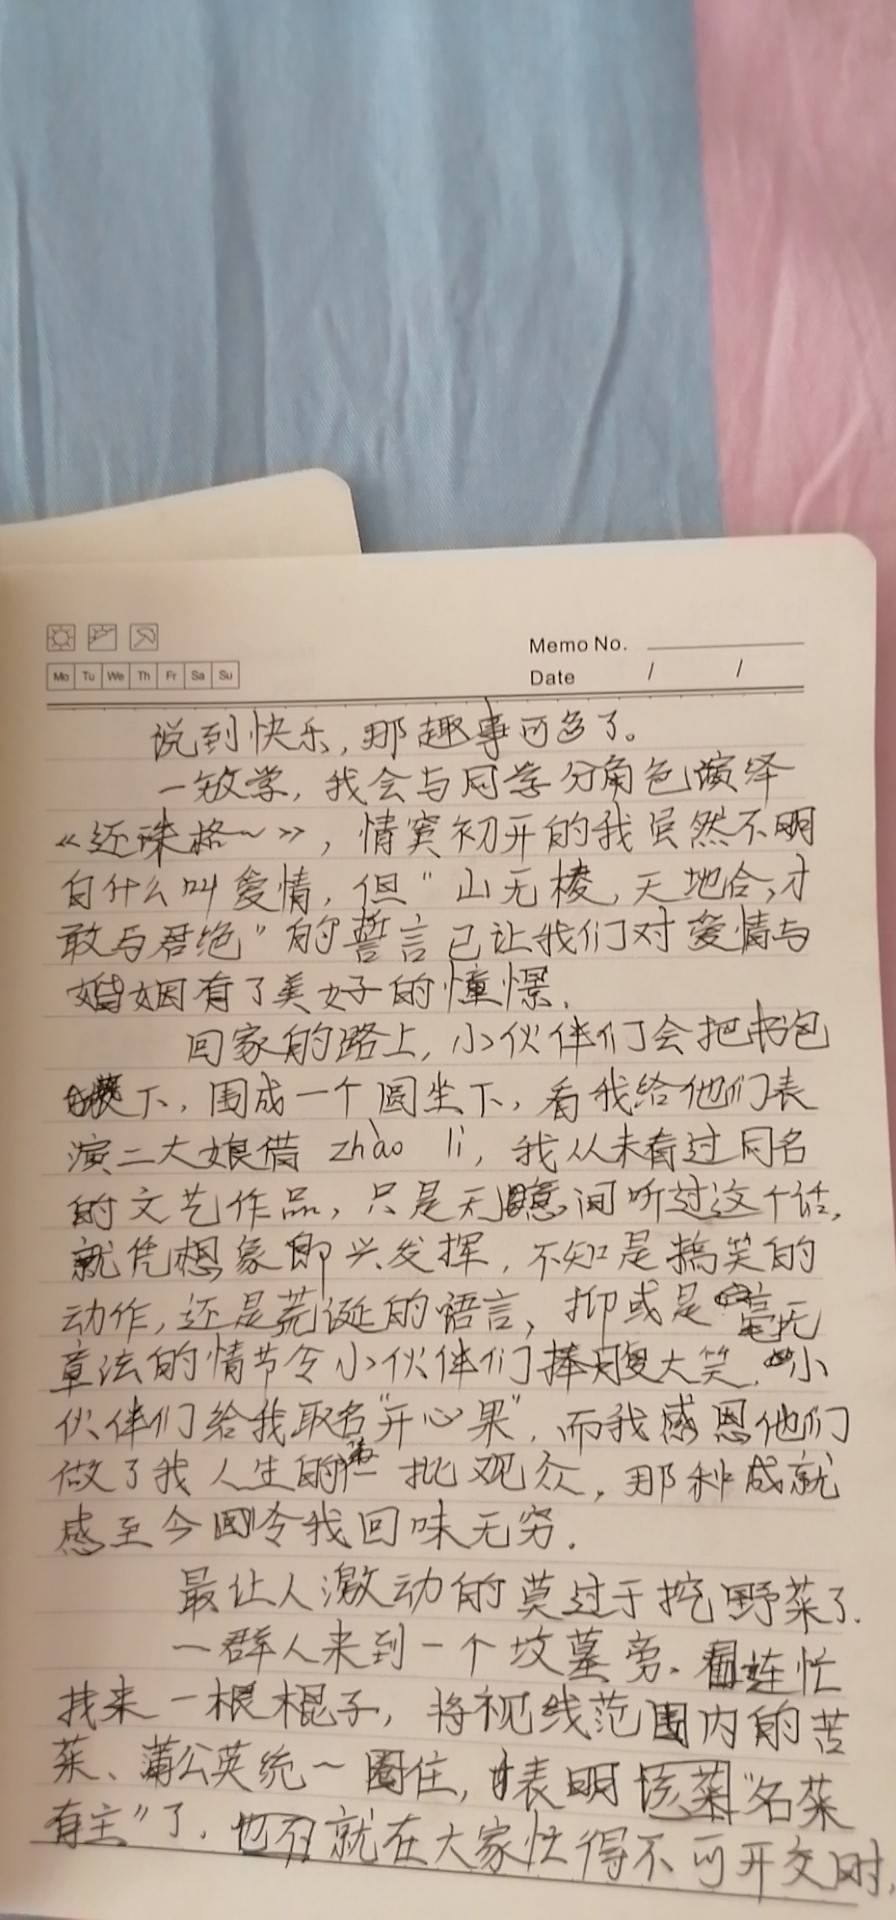 Memo No.
Mo Tu We Th Fr Sa Su
Date / /
说到快乐,那趣事可多了。
一放学,我会与同学分角色演绎
《还珠格~》,情窦初开的我虽然不明
白什么叫爱情,但“山无棱,天地合,才
敢与君绝”的誓言已让我们对爱情与
婚姻有了美好的憧憬.
回家的路上,小伙伴们会把书包
下,围成一个圆坐下,看我给他们表
演二大娘借 zhào lí,我从未看过同名
的文艺作品,只是无意间听过这个话,
就凭想象即兴发挥,不知是搞笑的
动作,还是荒诞的语言,抑或是毫无
章法的情节令小伙伴们捧腹大笑.小
伙伴们给我取名“开心果”,而我感恩他们
做了我人生的第一批观众,那种成就
感至今令我回味无穷.
最让人激动的莫过于挖野菜了.
一群人来到一个坟墓旁.连忙
找来一根棍子,将视线范围内的苦
菜、蒲公英统一圈住,表明该菜“名菜
有主”了.就在大家忙得不可开交时,